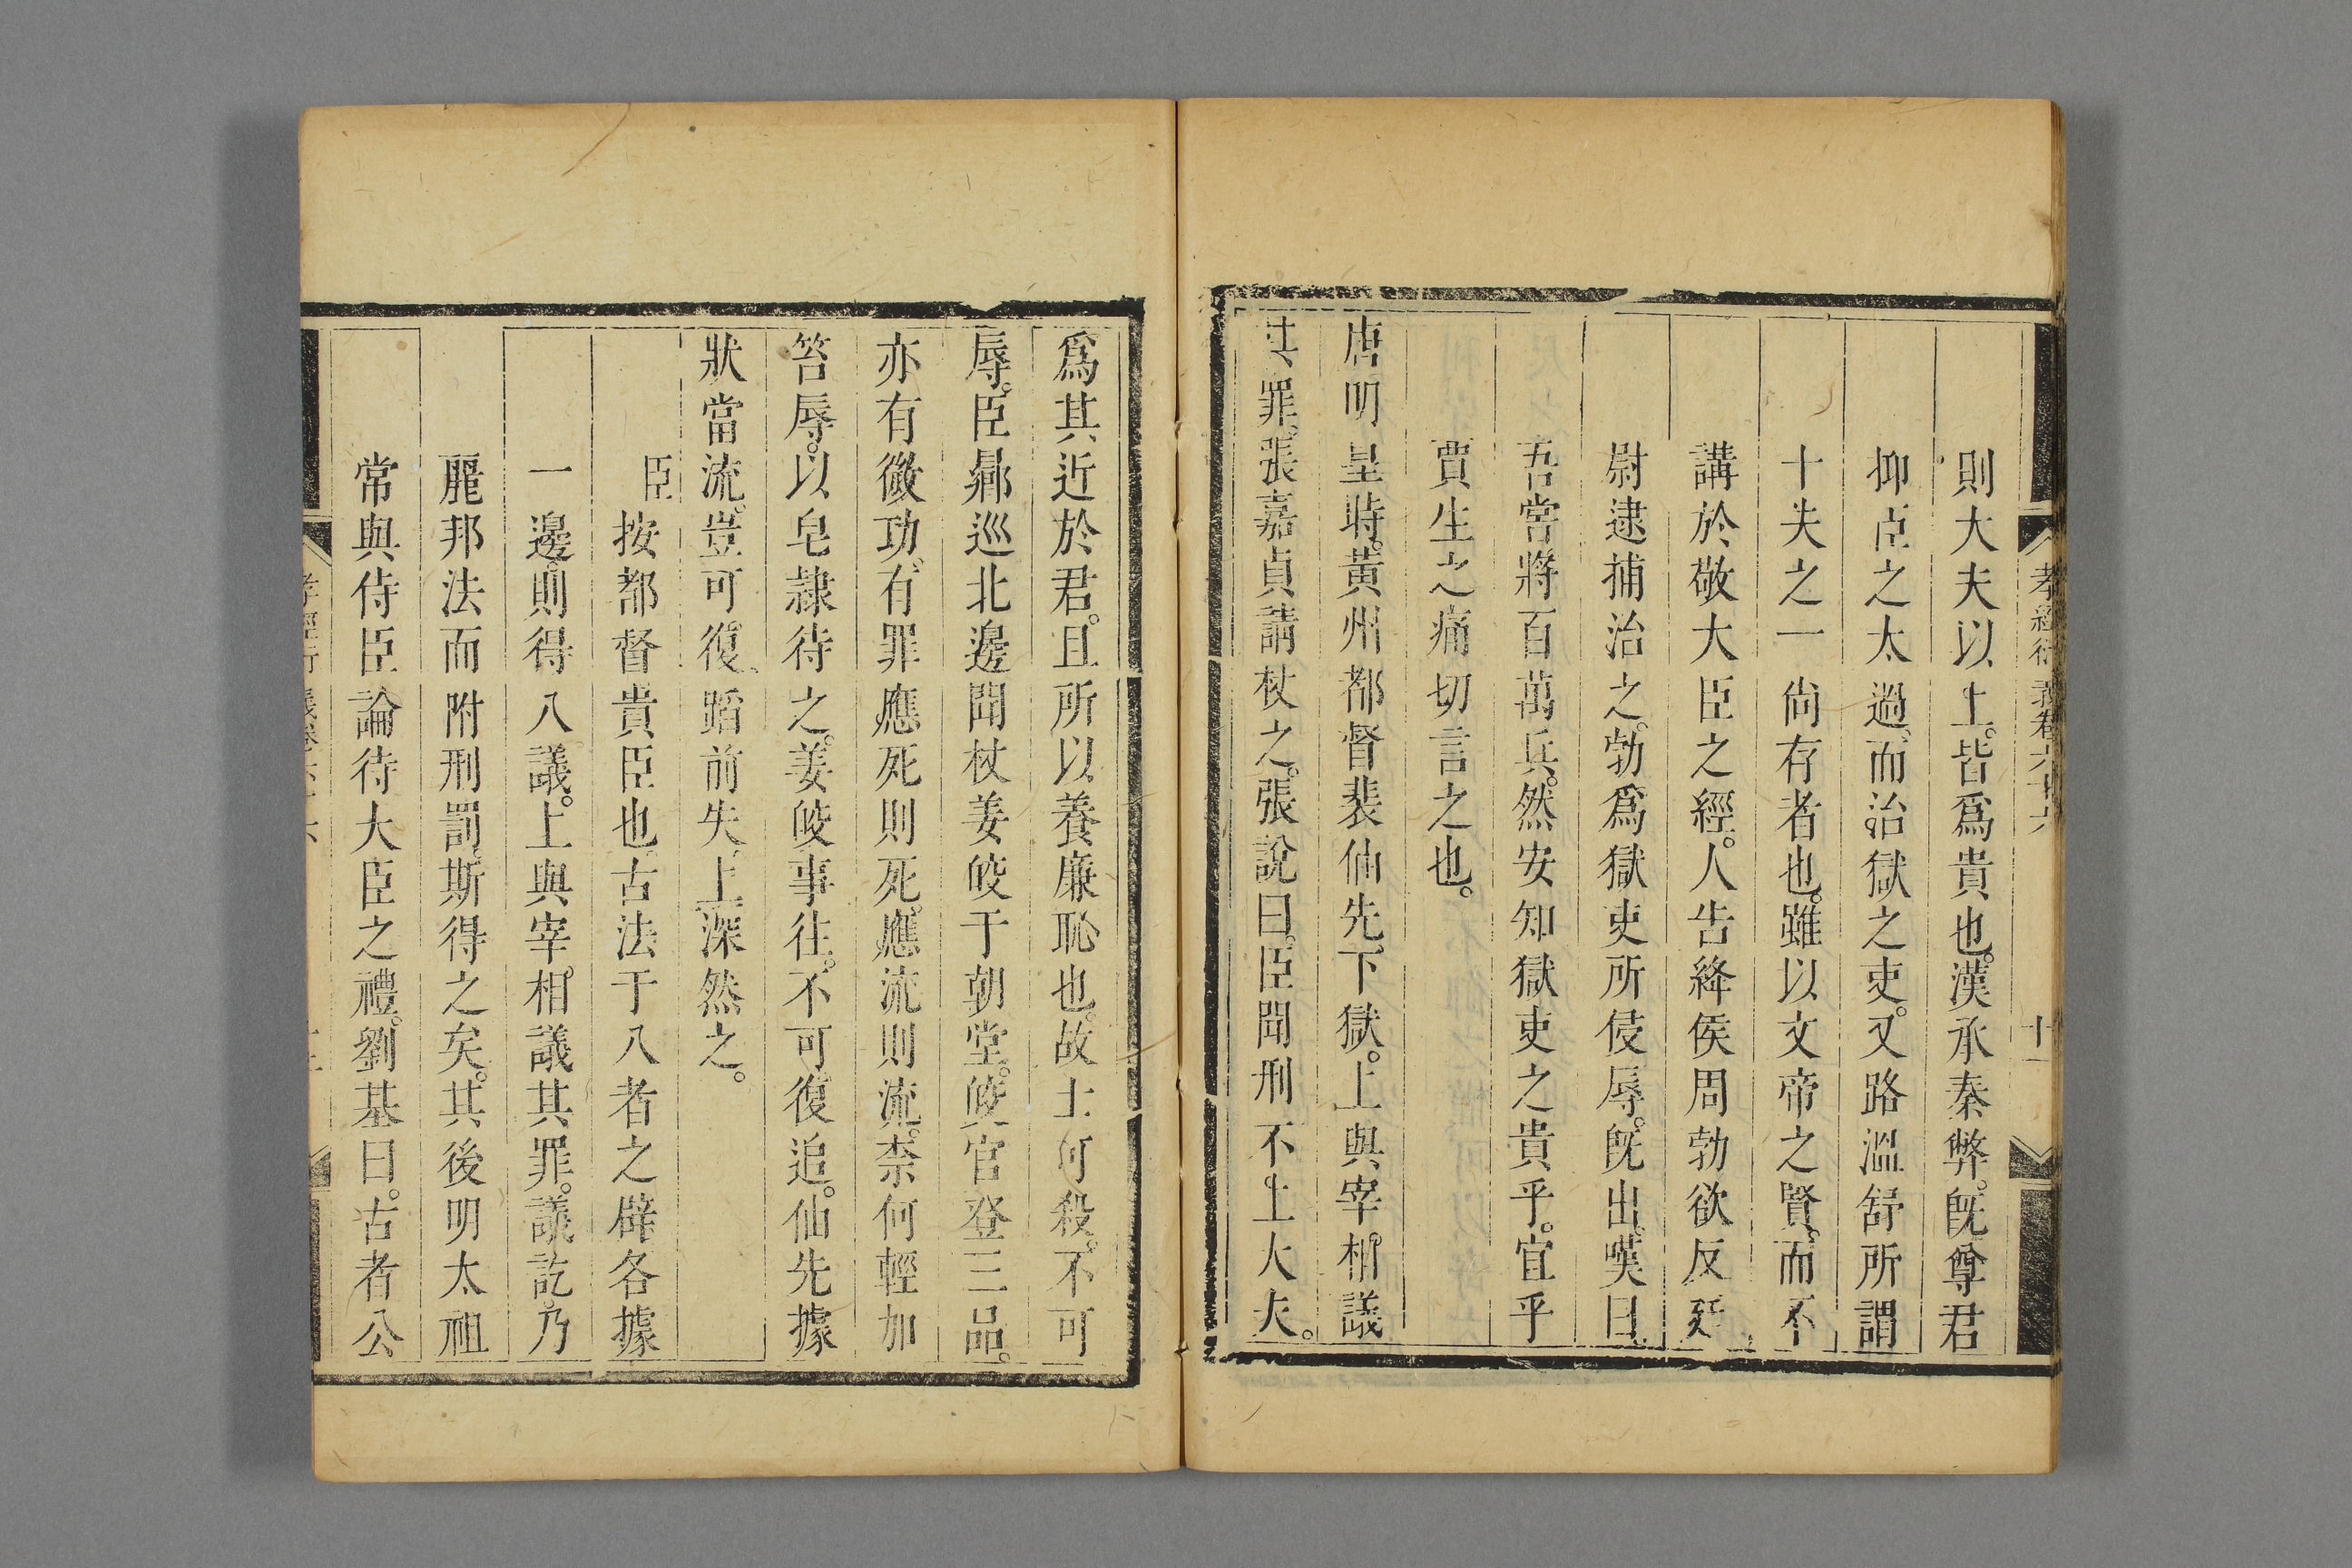 孝經衍義卷六十六 十一
則大夫以上。皆爲貴也。漢承秦弊。旣尊君
抑臣之太過。而治獄之吏。又路溫舒所謂
十失之一尙存者也。雖以文帝之賢。而不
講於敬大臣之經。人告絳侯周勃欲反廷
尉逮捕治之。勃爲獄吏所侵辱。旣出。嘆曰
吾嘗將百萬兵。然安知獄吏之貴乎。宜乎
賈生之痛切言之也。
唐明皇時。黃州都督裴伷先下獄。上與宰相議
其罪。張嘉貞請杖之。張說曰。臣聞刑不上大夫。
爲其近於君。且所以養廉恥也。故士可殺。不可
辱。臣曏巡北邊聞杖姜皎于朝堂。皎官登三品。
亦有微功。有罪應死則死。應流則流。柰何輕加
笞辱。以皂隸待之。姜皎事往。不可復追。伷先據
狀當流。豈可復蹈前失。上深然之。
臣按都督貴臣也。古法于八者之辟各據
一邊。則得八議。上與宰相議其罪。議訖。乃
麗邦法而附刑罰。斯得之矣。其後明太祖
常與侍臣論待大臣之禮。劉基曰。古者公